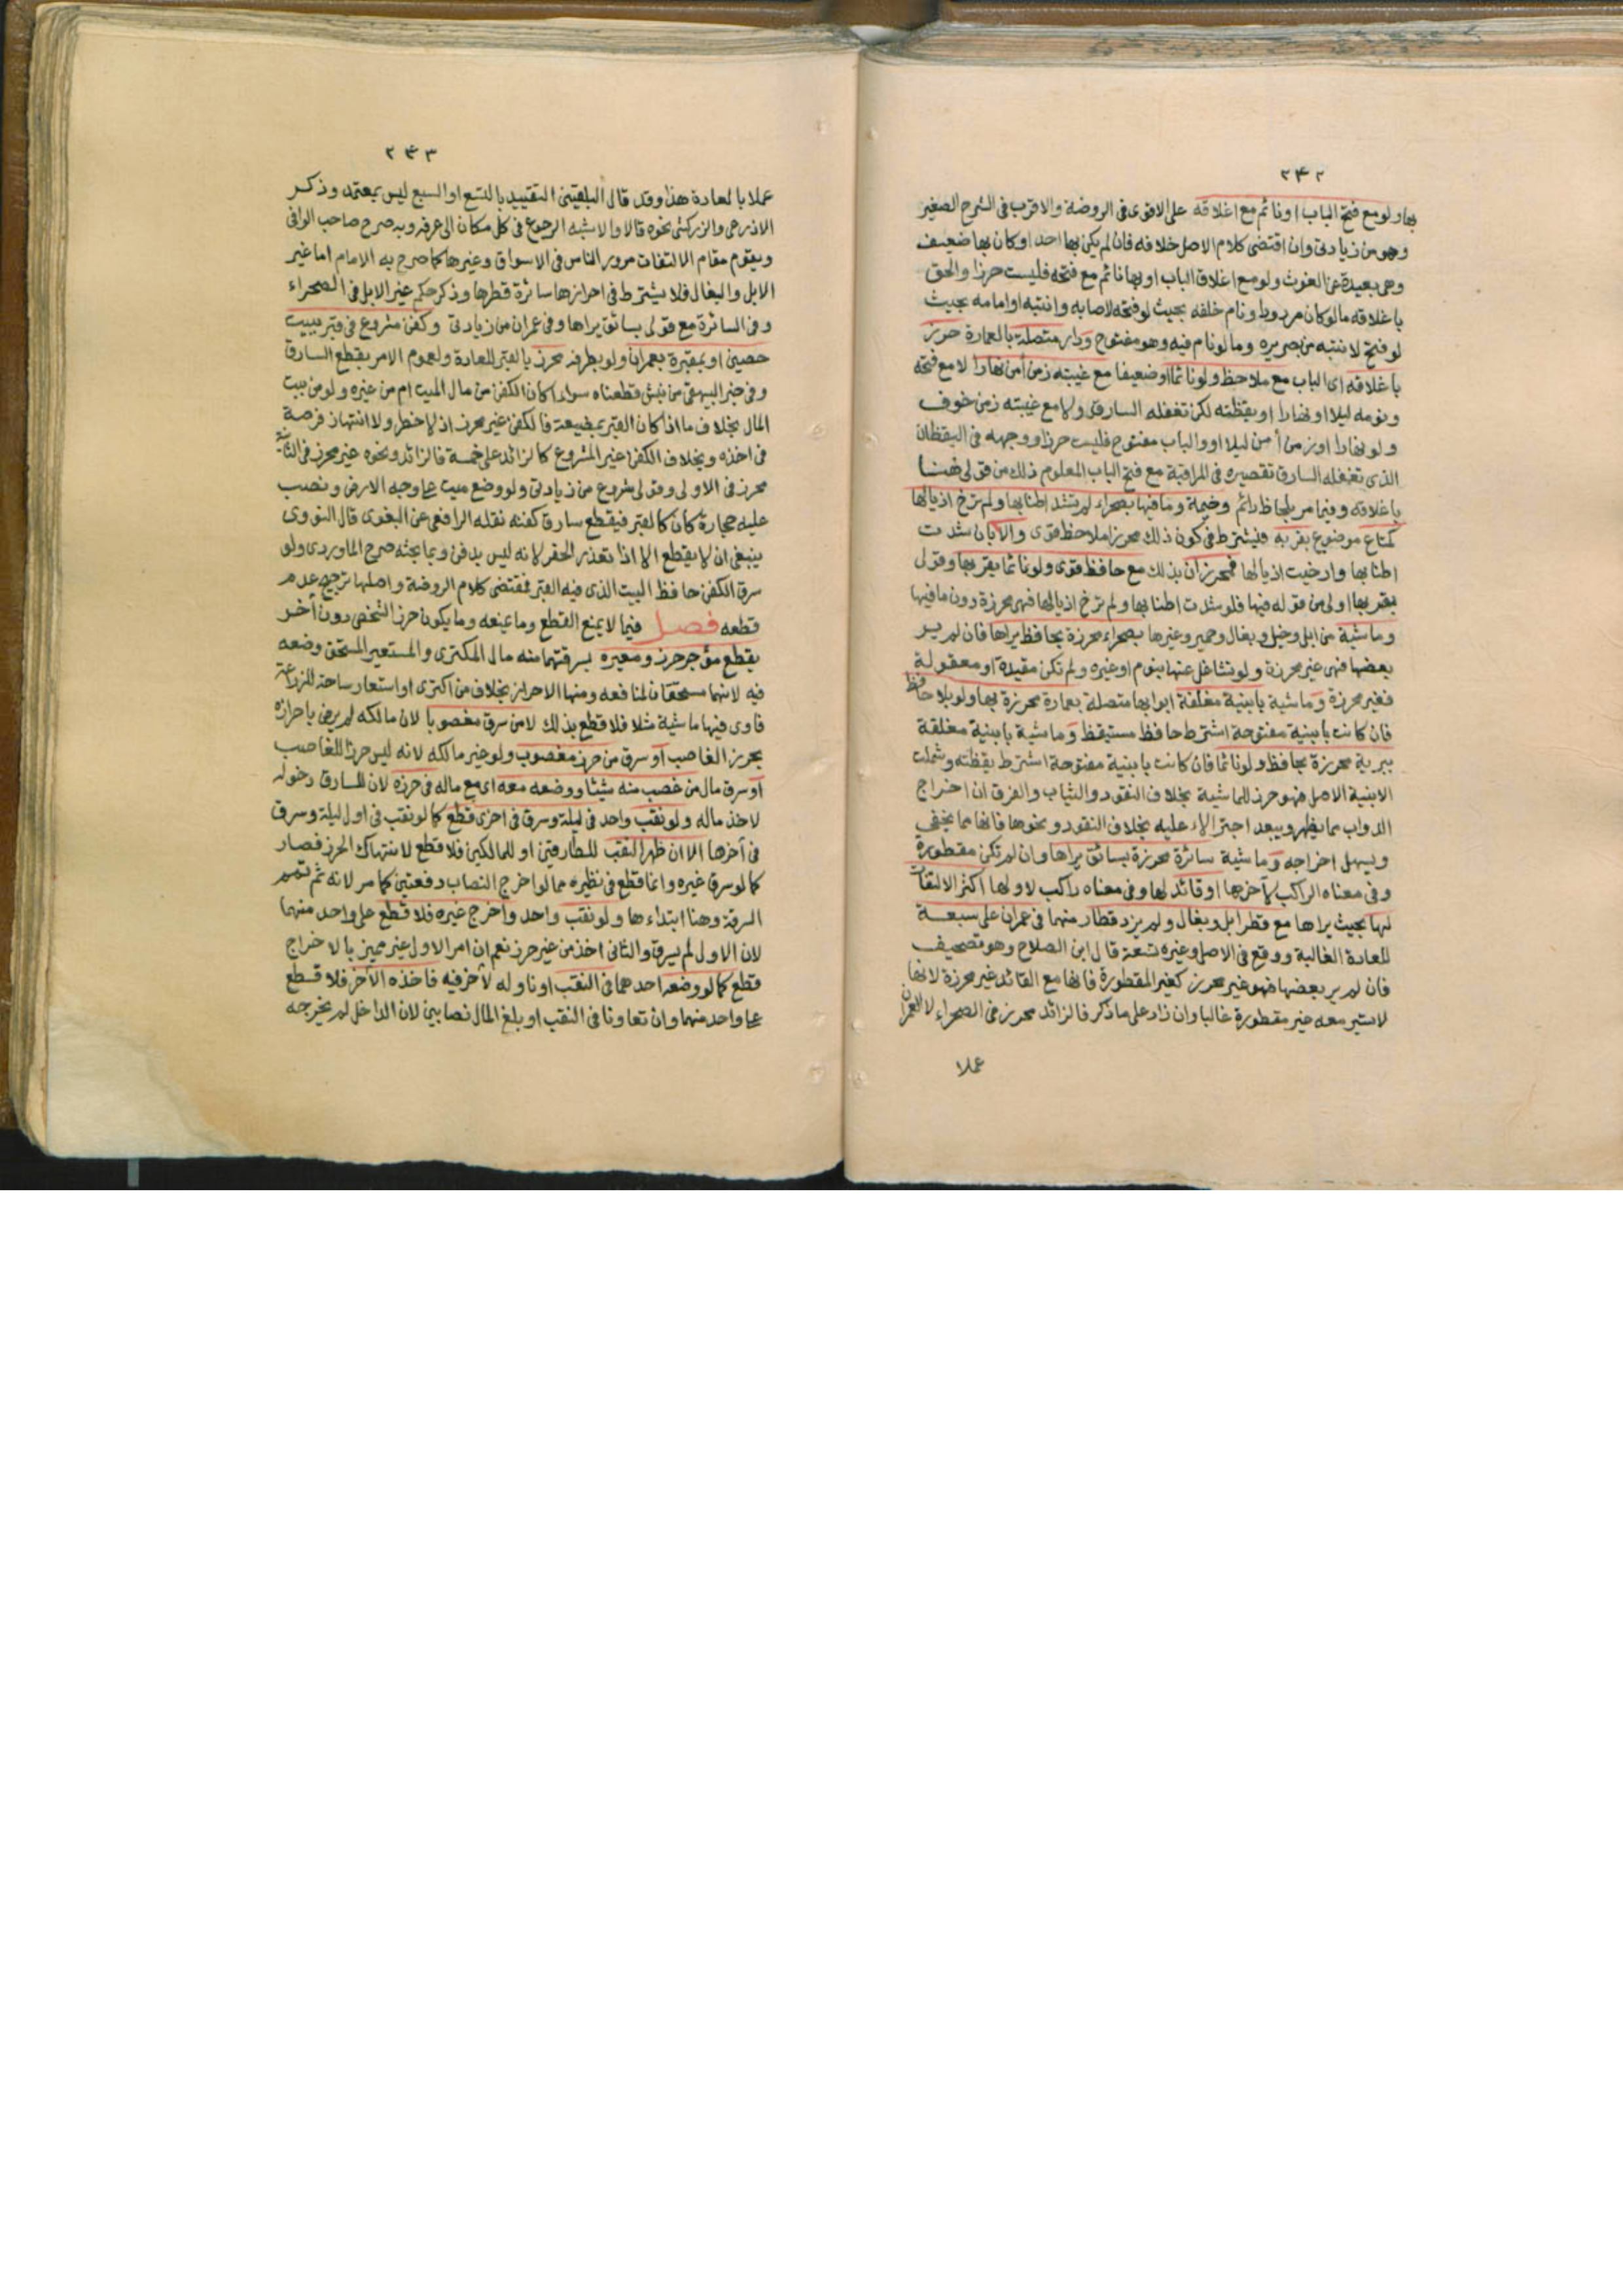 ٢٤٢
بها ولو مع فتح الباب او نائم مع اغلاقه على الاقوى فى الروضة والاقرب فى الشرح الصغير
وهو من زيادتى وان اقتضى كلام الاصل خلافه فان لم يكن بها احد او كان بها ضعيف
وهى بعيدة عن الغوث ولو مع اغلاق الباب او بها نائم مع فتحه فليست حرزا والحق
باغلاقه ما لو كان مردودا ونام خلفه بحيث لو فتحه لاصابه وانتبه او امامه بحيث
لو فتح لانتبه من صريره وما لو نام فيه وهو مفتوح ودار متصلة بالعمارة حرز
باغلاقه اى الباب مع ملاحظ ولو نائما او ضعيفا مع غيبته زمن أمن نهارا لا مع فتحه
ونومه ليلا او نهارا او يقظته لكن تغفله السارق ولا مع غيبته زمن خوف
ولو نهارا او زمن أمن ليلا او والباب مفتوح فليست حرزا ووجهه فى اليقظان
الذى تغفله السارق تقصيره فى المراقبة مع فتح الباب المعلوم ذلك من قولى هنا
باغلاقه وفيما مر بلحاظ دائم وخيمة وما فيها بصحراء لم تشد اطنابها ولم ترخ اذيالها
كمتاع موضوع بقربه فيشترط فى كون ذلك محرزا ملاحظ قوى والا بان شدت
اطنابها وارخيت اذيالها فمحرزان بذلك مع حافظ قوى ولو نائما بقربها وقولى
بقربها اولى من قوله فيها فلو شدت اطنابها ولم ترخ اذيالها فهى محرزة دون ما فيها
وماشية من ابل وخيل وبغال وحمير وغيرها بصحراء محرزة بحافظ يراها فان لم ير
بعضها فهى غير محرزة ولو تشاغل عنها بنوم او غيره ولم تكن مقيدة او معقولة
فغير محرزة وماشية بابنية مغلقة ابوابها متصلة بعمارة محرزة بها ولو بلا حافظ
فان كانت بابنية مفتوحة اشترط حافظ مستيقظ وماشية بابنية مغلقة
ببرية محرزة بحافظ ولو نائما فان كانت بابنية مفتوحة اشترط يقظته وشملت
الابنية الاصطبل فهو حرز للماشية بخلاف النقود والثياب والفرق ان اخراج
الدواب مما يظهر ويبعد اجتراء الاء عليه بخلاف النقود ونحوها فانها مما يخفى
ويسهل اخراجه وماشية سائرة محرزة بسائق يراها وان لم تكن مقطورة
وفى معناه الراكب لآخرها او قائد لها وفى معناه راكب لاولها اكثر الالتفات
لها بحيث يراها مع قطر ابل وبغال ولم يزد قطار منهما فى عمران على سبعة
للعادة الغالبة ووقع فى الاصل وغيره تسعة قال ابن الصلاح وهو تصحيف
فان لم ير بعضها فهو غير محرز كغير المقطورة فانها مع القائد غير محرزة لانها
لا تسير معه غير مقطورة غالبا وان زاد على ما ذكر فالزائد محرز فى الصحراء لا العمران
عملا
٢٤٣
عملا بالعادة هذا وقد قال البلقينى التقييد بالتسع او السبع ليس بمعتمد وذكر
الاذرعى والزركشى نحوه قالا والاشبه الرجوع فى كل مكان الى عرفه وبه صرح صاحب الوافى
ويقوم مقام الالتفات مرور الناس فى الاسواق وغيرها كما صرح به الامام اما غير
الابل والبغال فلا يشترط فى احرازها سائرة قطرها وذكر حكم غير الابل فى الصحراء
وفى السائرة مع قولى بسائق يراها وفى عمران من زيادتى وكفن مشروع فى قبر ببيت
حصين او بمقبرة بعمران ولو بطرفه محرز بالقبر للعادة ولعموم الامر بقطع السارق
وفى خبر البيهقى من نبش قطعناه سواء كان الكفن من مال الميت ام من غيره ولو من بيت
المال بخلاف ما اذا كان القبر بمضيعة فالكفن غير محرز اذ لا خطر ولا انتهاز فرصة
فى اخذه وبخلاف الكفن غير المشروع كالزائد على خمسة فالزائد ونحوه غير محرز فى الثانية
محرز فى الاولى وقولى مشروع من زيادتى ولو وضع ميت على وجه الارض ونصب
عليه حجارة كان كالقبر فيقطع سارق كفنه نقله الرافعى عن البغوى قال النووى
ينبغى ان لا يقطع الا اذا تعذر الحفر لانه ليس بدفن وبما بحثه صرح الماوردى ولو
سرق الكفن حافظ البيت الذى فيه القبر فمقتضى كلام الروضة واصلها ترجيح عدم
قطعه فصل فيما لا يمنع القطع وما يمنعه وما يكون حرز الشخص دون آخر
يقطع مؤجر حرز ومعيره بسرقتهما منه مال المكترى والمستعير المستحق وضعه
فيه لانهما مستحقان لمنافعه ومنها الاحراز بخلاف من اكترى او استعار ساحة للزراعة
فاوى فيها ماشية مثلا فلا قطع بذلك لا من سرق مغصوبا لان مالكه لم يرض باحرازه
بحرز الغاصب او سرق من حرز مغصوب ولو غير مالكه لانه ليس حرزا للغاصب
او سرق مال من غصب منه شيئا ووضعه معه اى مع ماله فى حرزه لان للسارق دخوله
لاخذ ماله ولو نقب واحد فى ليلة وسرق فى اخرى قطع كما لو نقب فى اول ليلة وسرق
فى آخرها الا ان ظهر النقب للطارقين او للمالكين فلا قطع لانتهاك الحرز فصار
كما لو سرق غيره وانما قطع فى نظيره مما لو اخرج النصاب دفعتين كما مر لانه ثم تمم
السرقة وهنا ابتداءها ولو نقب واحد واخرج غيره فلا قطع على واحد منهما
لان الاول لم يسرق والثانى اخذ من غير حرز نعم ان امر الاول غير مميز بالاخراج
قطع كما لو وضعه احدهما فى النقب او ناوله لآخر فيه فاخذه الآخر فلا قطع
على واحد منهما وان تعاونا فى النقب او بلغ المال نصابين لان الداخل لم يخرجه